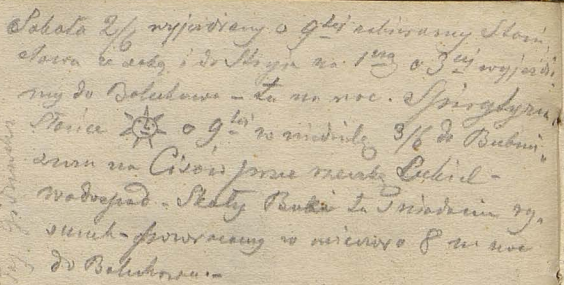 Sobota 2/6 wyjeżdżamy o 9tej zabieramy Stani
sława ze sobą i do Stryja na 1szą o 3ciej wyjeżdża
my do Bolechowa – tu na noc. Śpiąstym
Słońce o 9tej w niedzielę 3/6 do Bubni„
na Cisów przez rzeczkę Sukiel –
wodospad – Skały Bubn tu Śniadanie ry„
sunek – powracamy w wieczór o 8 na noc
do Bolechowa. –